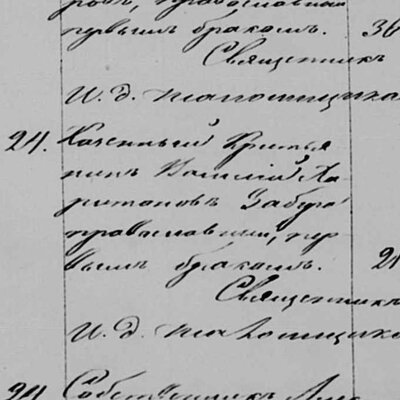 ровъ, православный
первымъ бракомъ. 36
Священникъ
И. д. псаломщика
24. Казенный Крестья
нинъ Василій Ха
ритоновъ
православный, пер
вымъ бракомъ. 21
Священникъ
И. д. псаломщика
24. Собственникъ